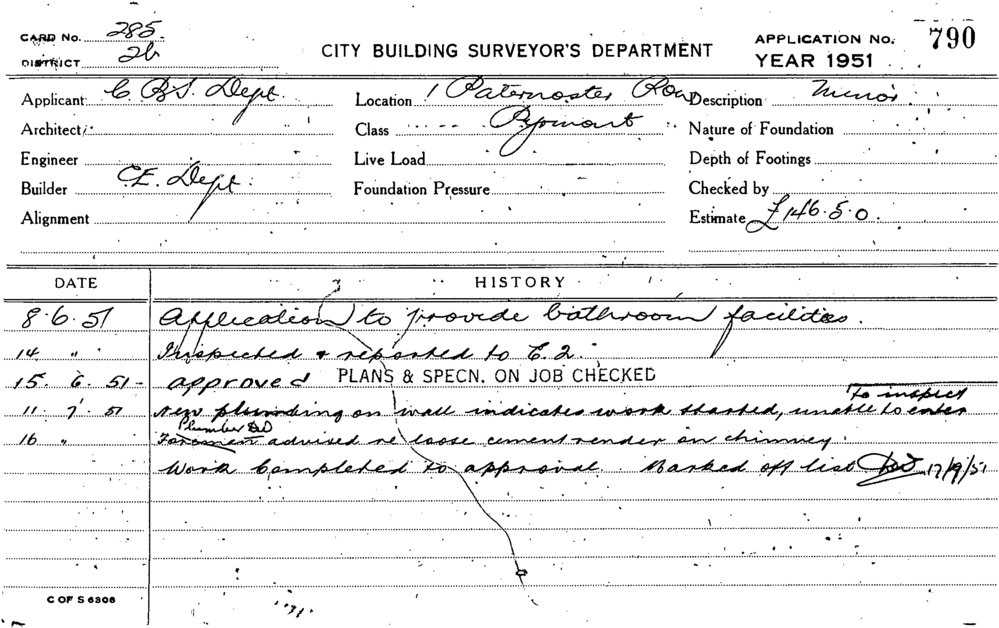 CARD No. 285.
DISTRICT 2b
CITY BUILDING SURVEYOR'S DEPARTMENT
APPLICATION No. 790
YEAR 1951
Applicant C.B.S. Dept. Location 1 Paternoster Row Description Minor
Architect Class Pyrmont Nature of Foundation
Engineer Live Load Depth of Footings
Builder C.E. Dept. Foundation Pressure Checked by
Alignment Estimate £146.5.0.
DATE HISTORY
8.6.51 Application to provide bathroom facilities.
14 " Inspected & reported to E.2.
15. 6. 51- approved PLANS & SPECN. ON JOB CHECKED
To inspect
11. 7. 51 New plumbing on wall indicates work started, unable to enter
Plumber
16 " Foreman advised re loose cement render on chimney.
Work Completed to approval. Marked off list 17/9/51
C OF S 6306